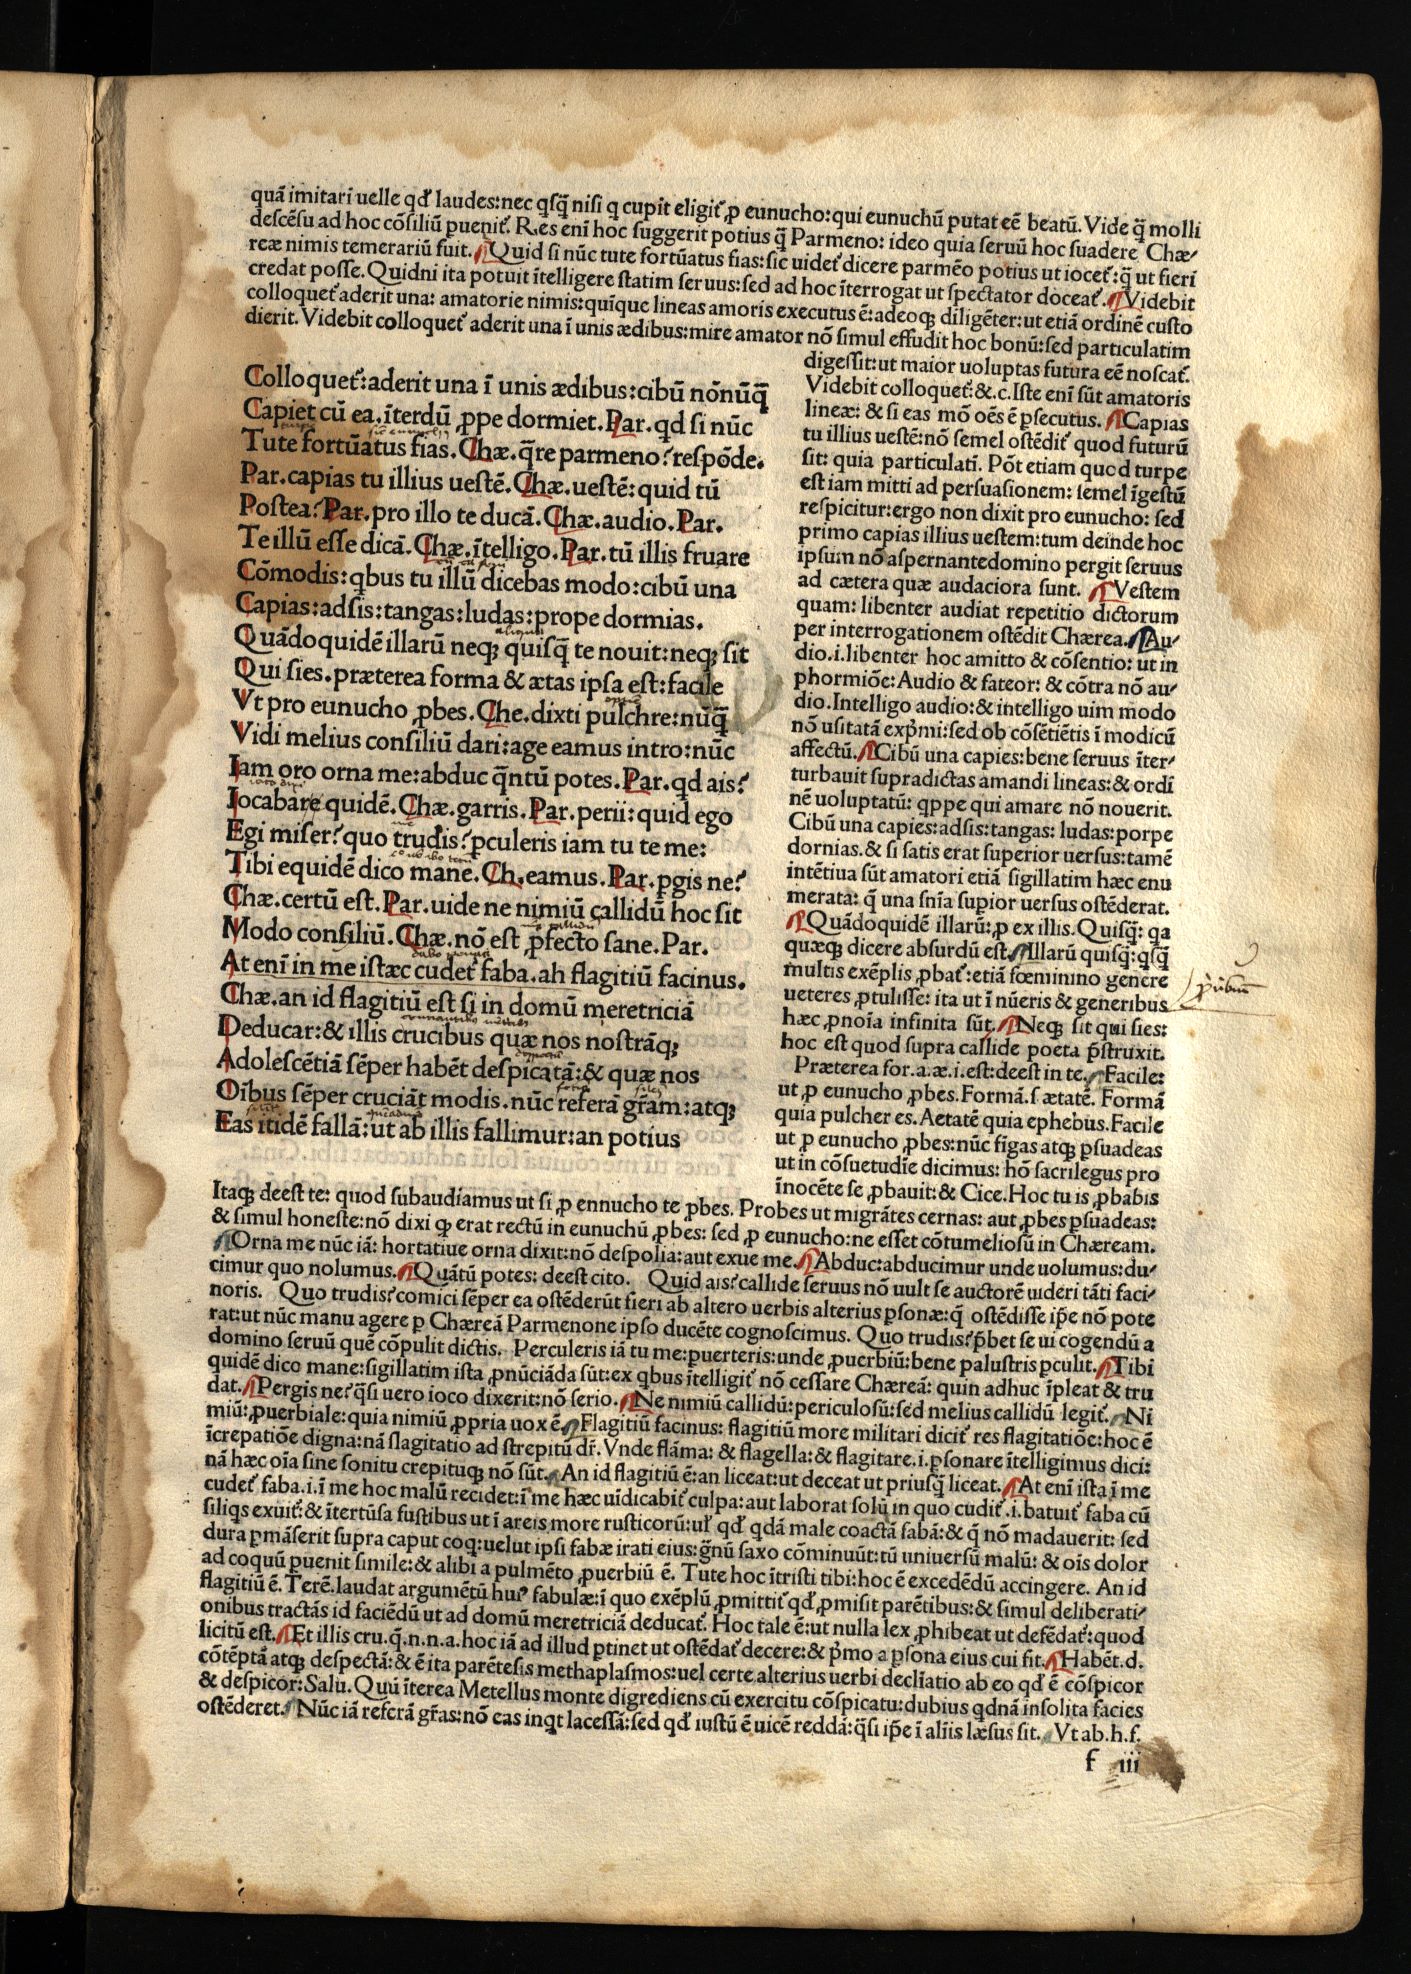 quā imitari uelle qđ laudes:nec qſq̄ niſi q cupit eligit̃ ꝓ eunucho:qui eunuchū putat eē beatū.Vide q̄ molli
deſcēſu ad hoc cōſiliū puenit̃. Res eni hoc ſuggerit potius q̄ Parmeno: ideo quia ſeruū hoc ſuadere Chæ⸗
reæ nimis temerariū fuit. Quid ſi nūc tute fortūatus fias:ſic uidet̃ dicere parmēo potius ut iocet̃:q̄ ut fieri
credat poſſe. Quidni ita potuit ītelligere ſtatim ſeruus:ſed ad hoc īterrogat ut ſpectator doceat̃. Videbit
colloquet̃ aderit una: amatorie nimis:quīque lineas amoris executus ē:adeoqꝫ diligēter:ut etiā ordinē cuſto
dierit. Videbit colloquet̃ aderit una ī unis ædibus:mire amator nō ſimul effudit hoc bonū:ſed particulatim
Colloquet̃:aderit una ī unis ædibus:cibū nōnūq̄
Capiet cū ea.īterdū ꝓpe dormiet. Par. qd ſi nūc
Tute fortūatus fias. Chæ. q̄re parmeno? reſpōde.
Par. capias tu illius ueſtē. Chæ. ueſtē: quid tū
Poſtea? Par. pro illo te ducā. Chæ. audio. Par.
Te illū eſſe dicā. Chæ. ītelligo. Par. tū illis fruare
Cōmodis:qbus tu illū dicebas modo:cibū una
Capias:adſis:tangas:ludas:prope dormias.
Quādoquidē illarū neqꝫ quiſq̄ te nouit:neqꝫ ſit
Qui ſies. præterea forma & ætas ipſa eſt:facile
Vt pro eunucho ꝓbes. Che. dixti pulchre:nūq̄
Vidi melius conſiliū dari:age eamus intro:nūc
Iam oro orna me:abduc q̄ntū potes. Par. qd ais?
Iocabare quidē. Chæ. garris. Par. perii: quid ego
Egi miſer? quo trudis? pculeris iam tu te me:
Tibi equidē dico mane. Ch. eamus. Par. pgis ne?
Chæ. certū eſt. Par. uide ne nimiū callidū hoc ſit
Modo conſiliū. Chæ. nō eſt ꝓfecto ſane. Par.
At eni in me iſtæc cudet̃ faba. ah flagitiū facinus.
Chæ. an id flagitiū eſt ſi in domū meretriciā
Deducar:& illis crucibus quæ nos noſtrāqꝫ
Adoleſcētiā ſēper habēt deſpicatā:& quæ nos
Oībus ſēper cruciāt modis. nūc referā gr̄am:atqꝫ
Eas itidē fallā:ut ab illis fallimur:an potius
digeſſit:ut maior uoluptas futura eē noſcat̃.
Videbit colloquet̃:&.c. Iſte eni ſūt amatoris
lineæ: & ſi eas mō oēs ē pſecutus. Capias
tu illius ueſtē:nō ſemel oſtēdit̃ quod futurū
ſit: quia particulati. Pōt etiam quod turpe
eſt iam mitti ad perſuaſionem: ſemel īgeſtū
reſpicitur:ergo non dixit pro eunucho: ſed
primo capias illius ueſtem:tum deinde hoc
ipſum nō aſpernantedomino pergit ſeruus
ad cætera quæ audaciora ſunt. Veſtem
quam: libenter audiat repetitio dictorum
per interrogationem oſtēdit Chærea. Au⸗
dio.i.libenter hoc amitto & cōſentio: ut in
phormiōe: Audio & fateor: & cōtra nō au⸗
dio. Intelligo audio:& intelligo uim modo
nō uſitatā exp̄mi:ſed ob cōſētiētis ī modicū
affectū. Cibū una capies:bene ſeruus īter⸗
turbauit ſupradictas amandi lineas:& ordi
nē uoluptatū: qppe qui amare nō nouerit.
Cibū una capies:adſis:tangas: ludas:porpe
dornias.& ſi ſatis erat ſuperior uerſus:tamē
intētiua ſūt amatori etiā ſigillatim hæc enu
merata: q̄ una ſn̄ia ſupior uerſus oſtēderat.
Quādoquidē illarū: ꝓ ex illis. Quiſq̄: qa
quæqꝫ dicere abſurdū eſt. Illarū quiſq̄:qſq̄
multis exēplis ꝓbat̃:etiā fœminino genere
ueteres ꝓtuliſſe: ita ut ī nūeris & generibus
hæc ꝓnoīa infinita ſūt. Neqꝫ ſit qui ſies:
hoc eſt quod ſupra callide poeta p̄ſtruxit.
Præterea for.a.æ.i.eſt:deeſt in te. Facile:
ut ꝓ eunucho ꝓbes. Formā.ſ ætatē. Formā
quia pulcher es. Aetatē quia ephebus. Facile
ut ꝓ eunucho ꝓbes:nūc figas atqꝫ pſuadeas
ut in cōſuetudīe dicimus: hō ſacrilegus pro
īnocēte ſe ꝓbauit:& Cice. Hoc tu is ꝓbabis
Itaqꝫ deeſt te: quod ſubaudiamus ut ſi ꝓ ennucho te ꝓbes. Probes ut migrātes cernas: aut ꝓbes pſuadeas:
& ſimul honeſte:nō dixi ꝙ erat rectū in eunuchū ꝓbes: ſed ꝓ eunucho:ne eſſet cōtumelioſū in Chæream.
Orna me nūc iā: hortatiue orna dixit:nō deſpolia:aut exue me. Abduc:abducimur unde uolumus:du⸗
cimur quo nolumus. Quātū potes: deeſt cito. Quid ais? callide ſeruus nō uult ſe auctorē uideri tāti faci⸗
noris. Quo trudis? comici ſēper ea oſtēderūt fieri ab altero uerbis alterius pſonæ:q̄ oſtēdiſſe ip̄e nō pote
rat:ut nūc manu agere p Chæreā Parmenone ipſo ducēte cognoſcimus. Quo trudis? p̄bet ſe ui cogendū a
domino ſeruū quē cōpulit dictis. Perculeris iā tu me:puerteris:unde ꝓuerbiū:bene paluſtris pculit. Tibi
quidē dico mane:ſigillatim iſta ꝓnūciāda ſūt:ex qbus ītelligit̃ nō ceſſare Chæreā: quin adhuc īpleat & tru
dat. Pergis ne? q̄ſi uero ioco dixerit:nō ſerio. Ne nimiū callidū:periculoſū:ſed melius callidū legit̃. Ni
miū:ꝓuerbiale:quia nimiū ꝓpria uox ē. Flagitiū facinus: flagitiū more militari dicit̃ res flagitatiōe:hoc ē
īcrepatiōe digna:nā flagitatio ad ſtrepitū dr̄. Vnde flāma: & flagella:& flagitare.i.pſonare ītelligimus dici:
nā hæc oīa ſine ſonitu crepituqꝫ nō ſūt. An id flagitiū ē:an liceat:ut deceat ut priuſq̄ liceat. At eni iſta ī me
cudet̃ faba.i.ī me hoc malū recidet:ī me hæc uīdicabit̃ culpa:aut laborat ſolū in quo cudit̃.i.batuit̃ faba cū
ſiliqs exuit̃:& īterūſa fuſtibus ut ī areis more ruſticorū:ul̃ qđ qdā male coactā fabā:& q̄ nō madauerit: ſed
dura pmāſerit ſupra caput coq:uelut ipſi fabæ irati eius:ḡnū ſaxo cōminuūt:tū uniuerſū malū: & oīs dolor
ad coquū puenit ſimile:& alibi a pulmēto ꝓuerbiū ē. Tute hoc ītriſti tibi:hoc ē excedēdū accingere. An id
flagitiū ē. Terē. laudat argumētū huꝰ fabulæ:ī quo exēplū ꝓmittit̃ qđ ꝓmiſit parētibus:& ſimul deliberati⸗
onibus tractās id faciēdū ut ad domū meretriciā deducat̃. Hoc tale ē:ut nulla lex ꝓhibeat ut defēdat̃:quod
licitū eſt. Et illis cru.q̄.n.n.a.hoc iā ad illud ptinet ut oſtēdat̃ decere:& p̄mo a pſona eius cui fit. Habēt.d.
cōtēptā atqꝫ deſpectā:& ē ita parēteſis methaplaſmos:uel certe alterius uerbi decliatio ab eo qđ ē cōſpicor
& dēſpicor:Salu. Quū īterea Metellus monte digrediens cū exercitu cōſpicatu:dubius qdnā inſolita facies
oſtēderet. Nūc iā referā gr̄as:nō eas inqt laceſſā:ſed qđ iuſtū ē uicē reddā:q̄ſi ip̄e ī aliis læſus ſit. Vt ab.h.f.
f iii